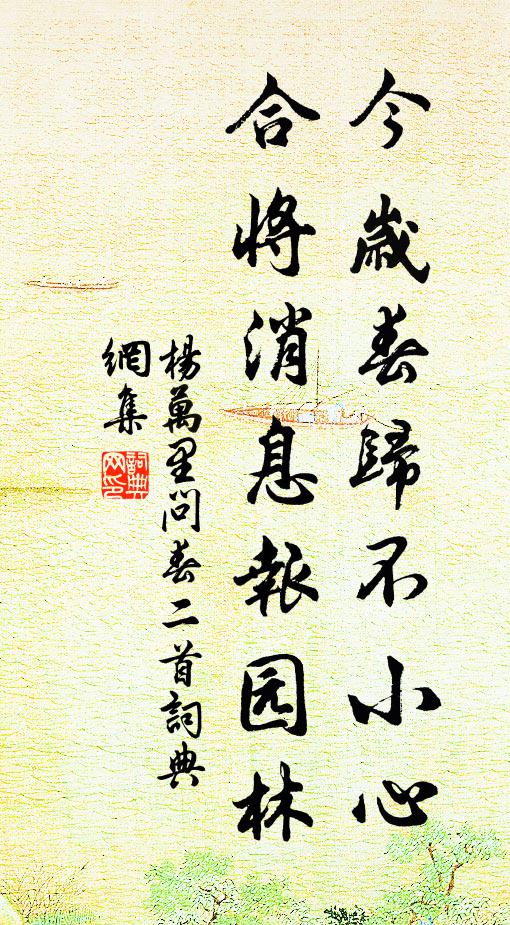 今歲春歸不小心
合將消息報园林
楊萬里問春二首詞典
網集
詞典网印